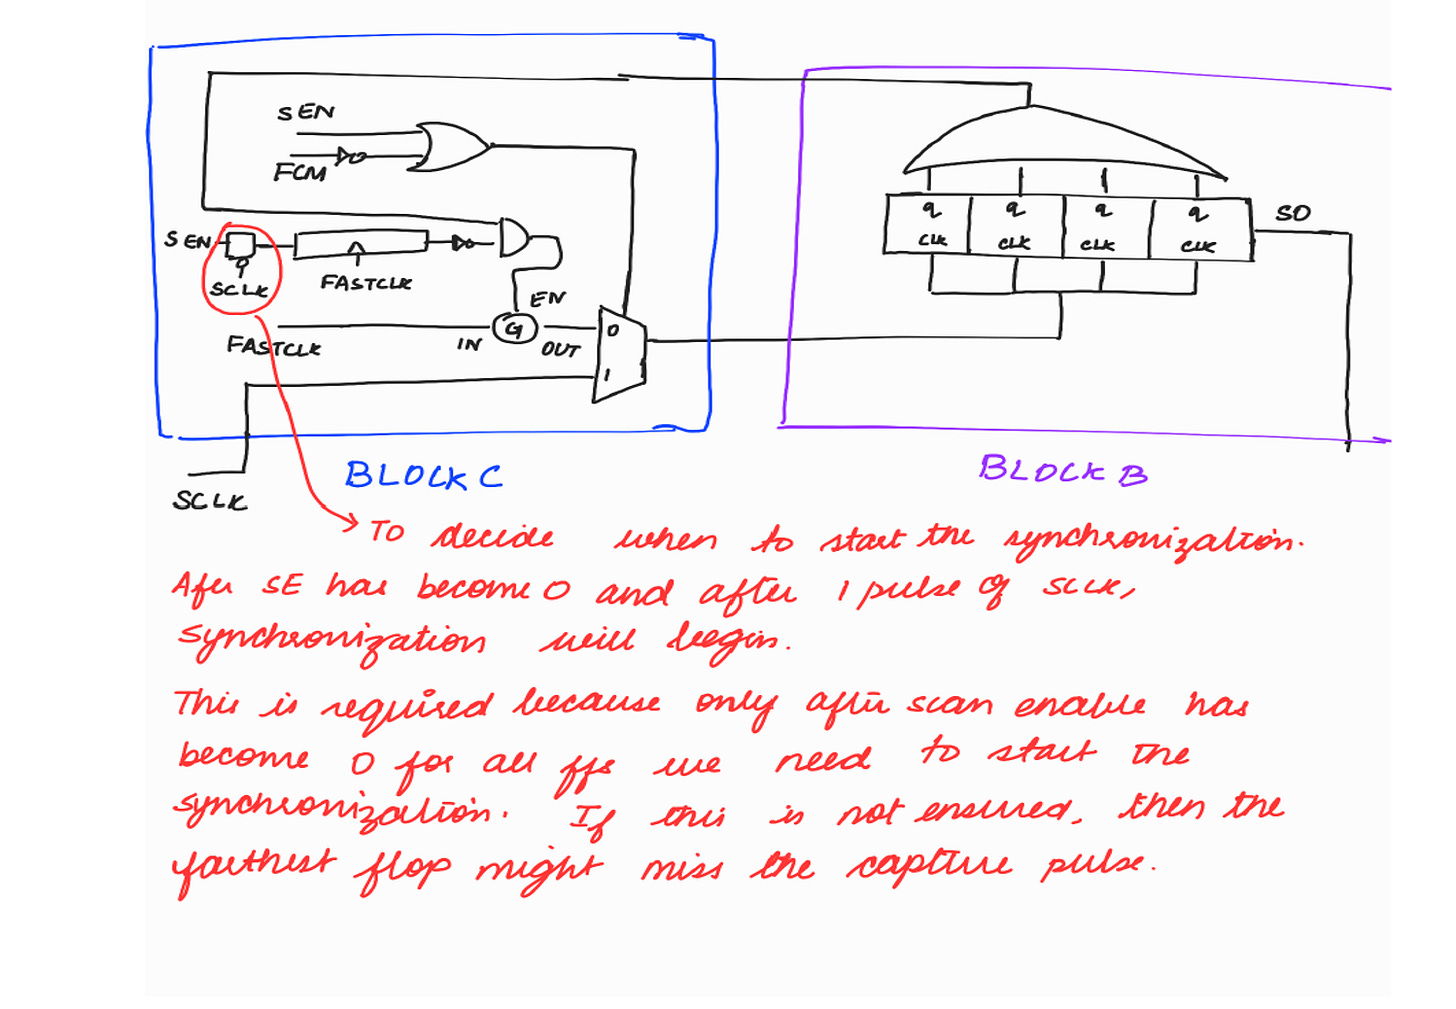 SEN
FCM
SEN
SCLK
FASTCLK
EN
FASTCLK
IN
G
OUT
0
1
SCLK
BLOCK C
q q q q
CLK CLK CLK CLK
SO
BLOCK B
To decide when to start the synchronization.
Afer SE has become 0 and after 1 pulse of SCLK,
synchronization will begin.
This is required because only after scan enable has
become 0 for all ffs we need to start the
synchronization. If this is not ensured, then the
farthest flop might miss the capture pulse.